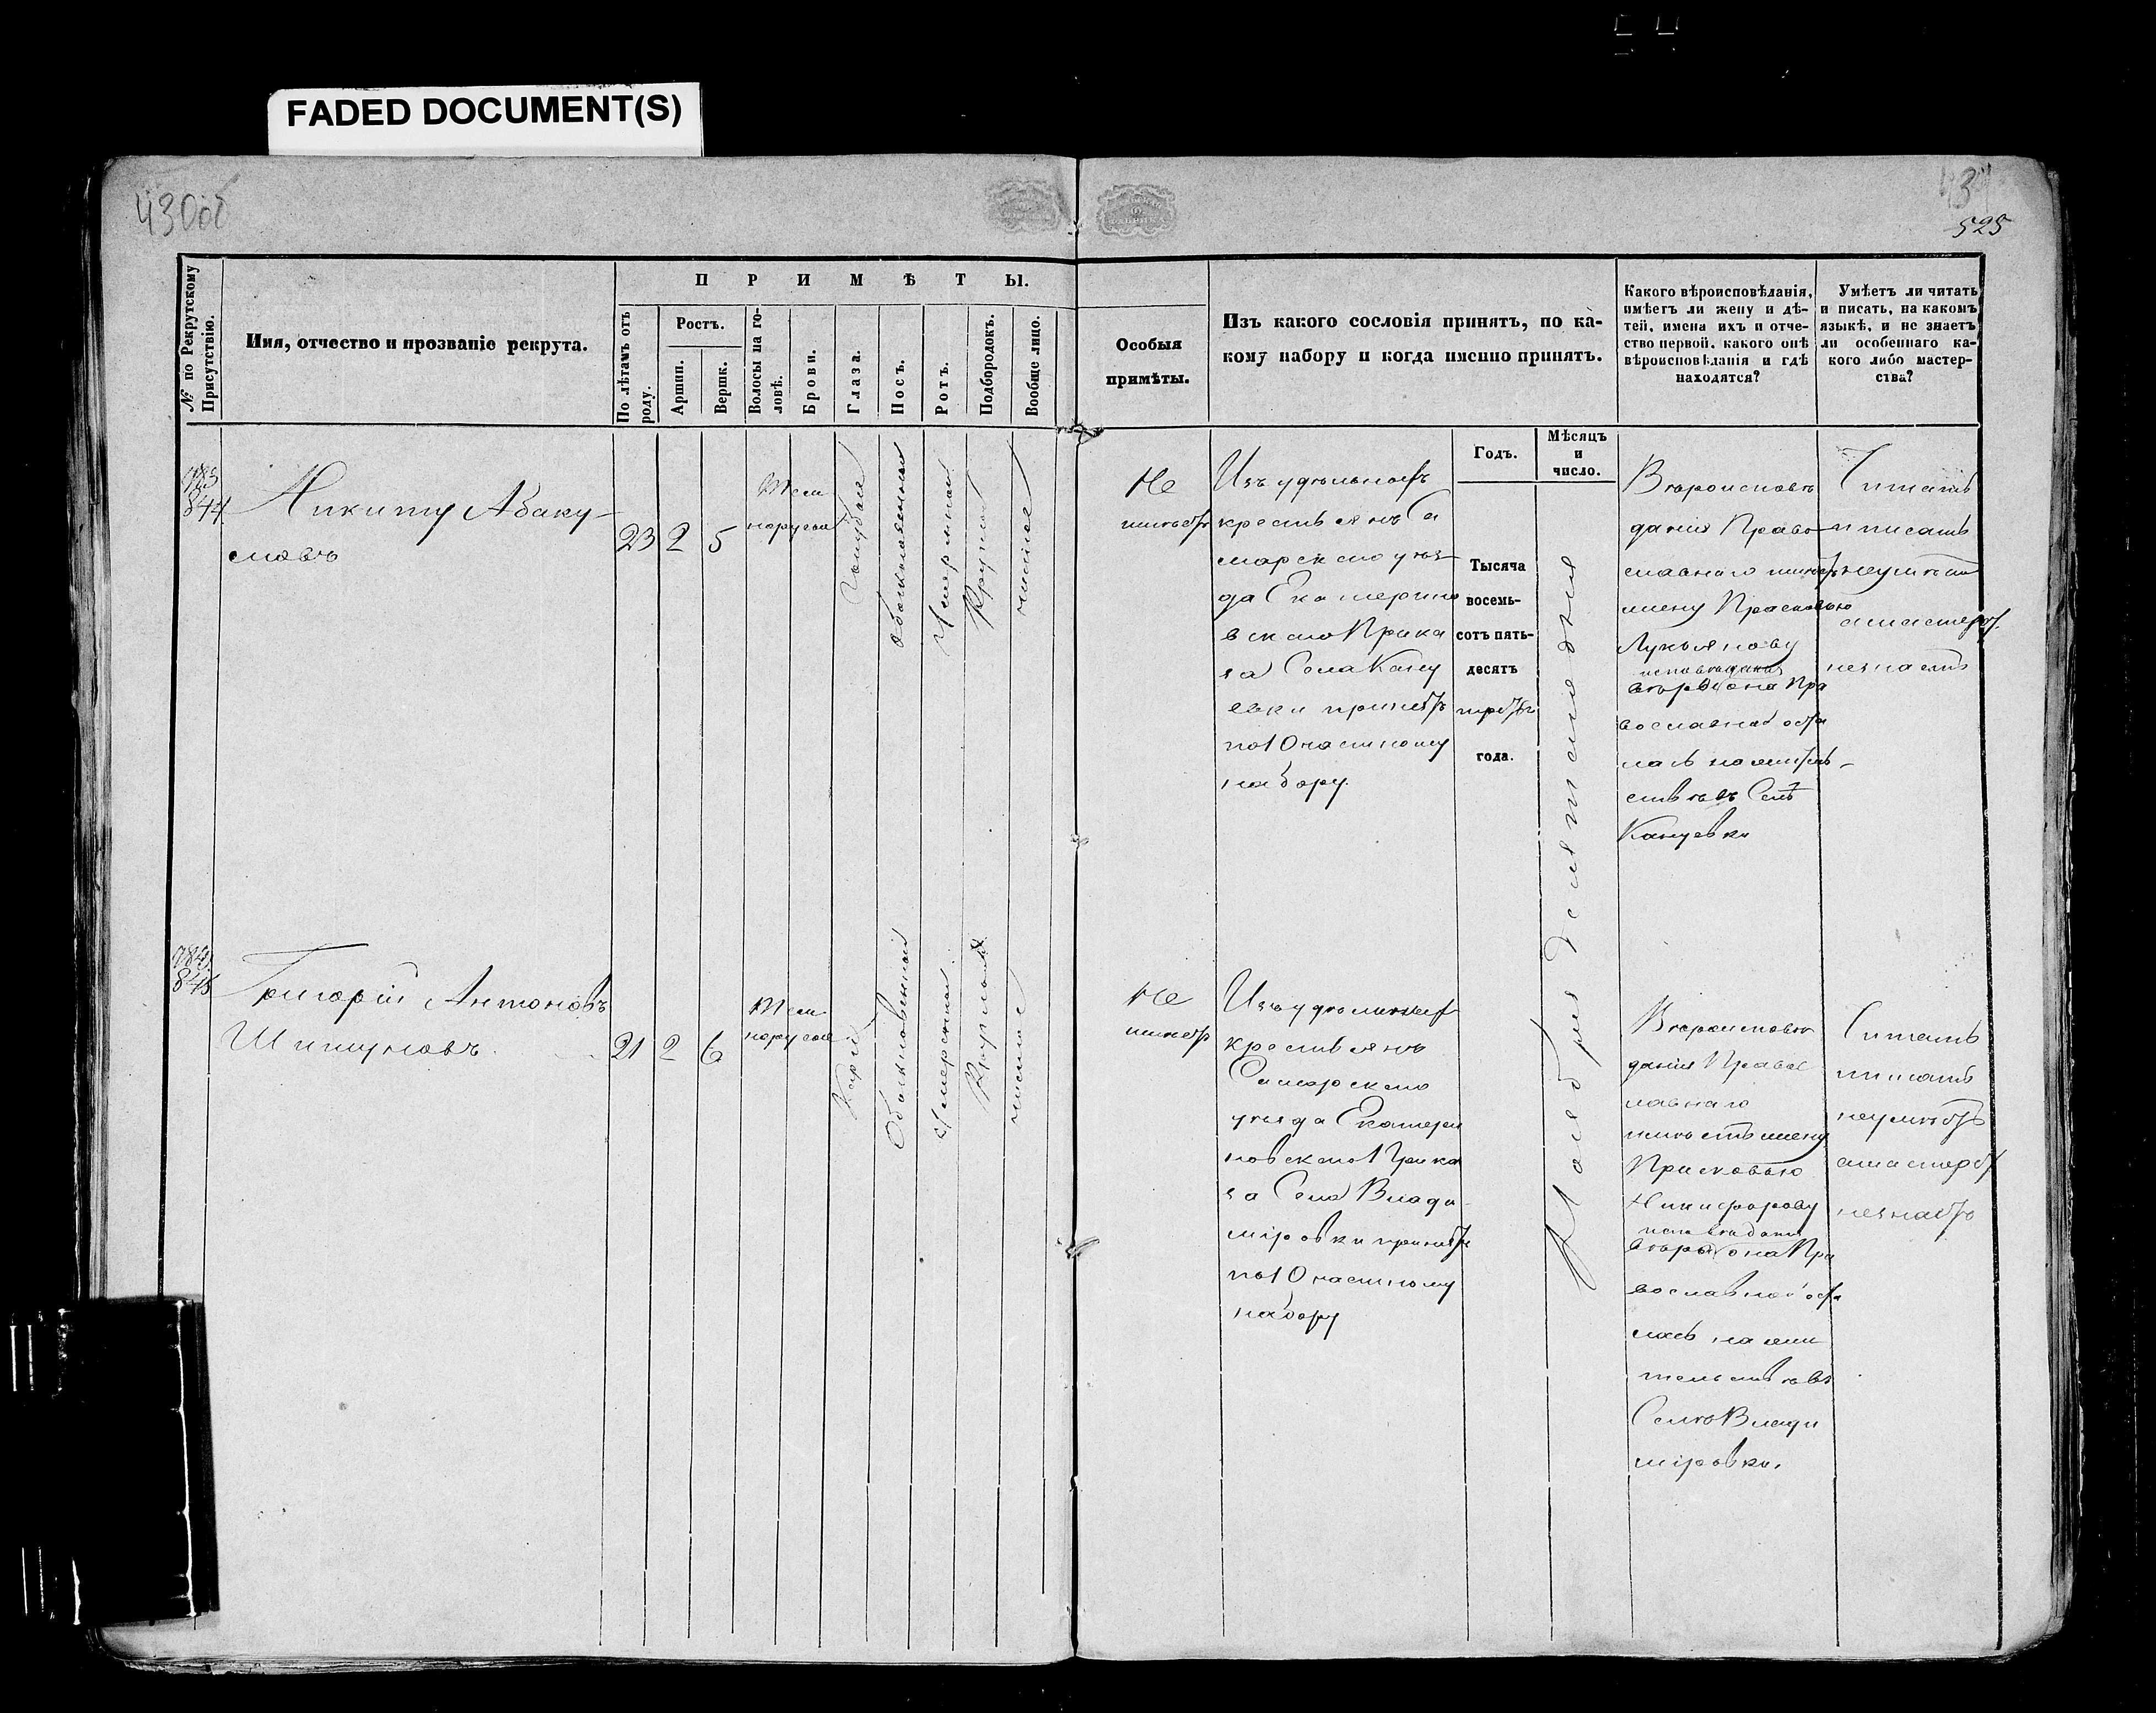 FADED DOCUMENT(S)
430об
431
525
№ по Рекрутскому Присутствію.
Имя, отчество и прозваніе рекрута.
ПРИМѢТЫ.
По лѣтамъ отъ роду.
Ростъ.
Аршин.
Вершк.
Волосы на головѣ.
Брови.
Глаза.
Носъ.
Ротъ.
Подбородокъ.
Вообще лицо.
Особыя
примѣты.
Изъ какого сословія принятъ, по ка-
кому набору и когда именно принятъ.
Какого вѣроисповѣданія,
имѣетъ ли жену и дѣ-
тей, имена ихъ и отче-
ство первой, какого онѣ
вѣроисповѣданія и гдѣ
находятся?
Умѣетъ ли читать
и писать, на какомъ
языкѣ, и не знаетъ
ли особеннаго ка-
кого либо мастер-
ства?
Годъ.
Мѣсяцъ
и
число.
844
Никиту Абаку-
мовъ
23 2 5
Темно
русые
Голубые
обыкновенный
Умѣренный
Круглый
чистое
Не
имѣетъ
Изъ удѣльныхъ
крестьянъ Са
марскаго уѣз
да Екатерино
вскаго Прика
за Села Кану
евки принятъ
по 10 частному
набору.
Тысяча
восемь-
сотъ пять-
десятъ
третьяго
года.
Ноября десятаго дня
Вѣроисповѣ
данія Право
славнаго имѣетъ
жену Прасковью
Лукьянову
исповѣданія
вѣры она Пра
вославной оста
лась на житель-
ствѣ въ Селѣ
Кануевки
Читать
и писать
неумѣетъ
а мастерст.
незнаетъ
845
Григорій Антоновъ
Шишуновъ
21 2 6
Темно
русые
Карій
Обыкновенный
Умѣренный
Круглый
чистое
Не
имѣетъ
Изъ удѣльныхъ
крестьянъ
Самарскаго
уѣзда Екатери
новскаго Прика
за Села Влади
міровки принятъ
по 10 частному
набору
Вѣроисповѣ
данія Правос
лавнаго
имѣетъ жену
Прасковью
Никифорову
исповѣданія
вѣры она Пра
вославной оста
лась на жи
тельствѣ въ
Селѣ Влади
міровки.
Читать
и писать
неумѣетъ
а мастерст
незнаетъ